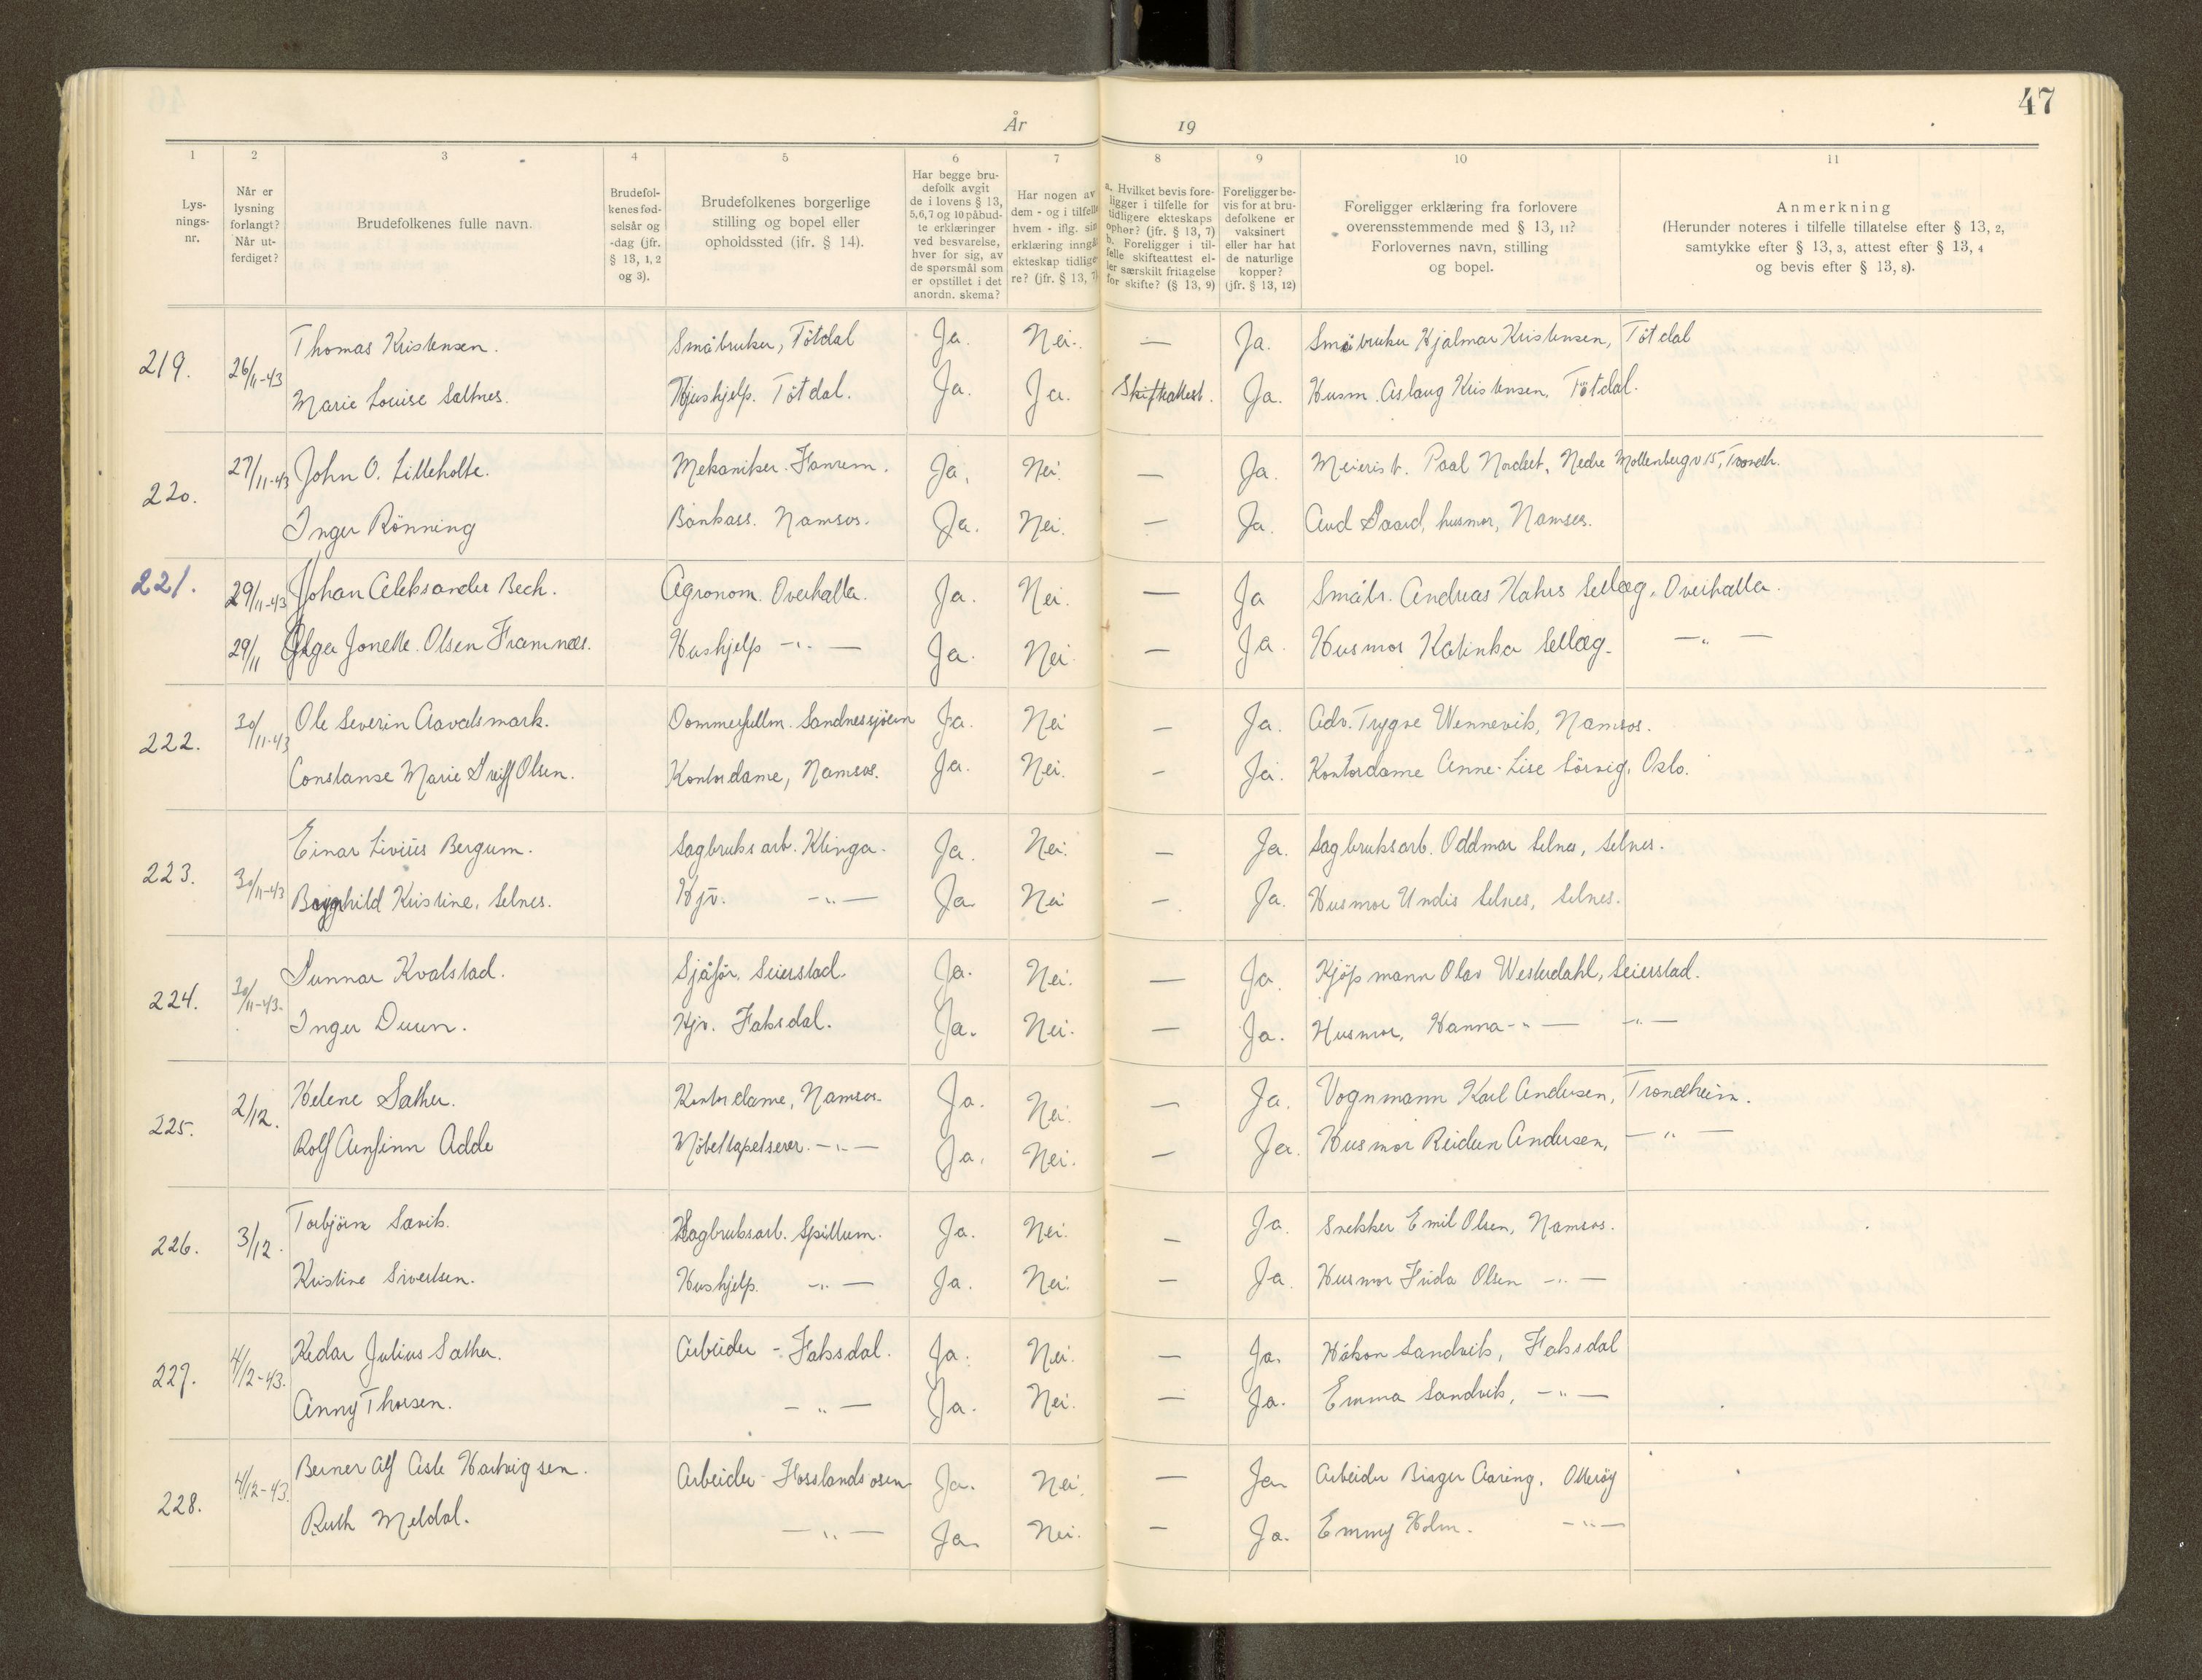 47
År 19
1 2 3 4 5 6 7 8 9 10 11
Lys-
nings-
nr.
Når er
lysning
forlangt?
Når ut-
ferdiget?
Brudefolkenes fulle navn.
Brudefol-
kenes fød-
selsår og
-dag (jfr.
§ 13, 1, 2
og 3).
Brudefolkenes borgerlige
stilling og bopel eller
opholdssted (jfr. § 14).
Har begge bru-
defolk avgit
de i lovens § 13,
5,6,7 og 10 påbud-
te erklæringer
ved besvarelse,
hver for sig, av
de spørsmål som
er opstillet i det
anordn. skema?
Har nogen av
dem - og i tilfelle
hvem - iflg. sin
erklæring inngåt
ekteskap tidlige-
re? (jfr. § 13, 7)
a. Hvilket bevis fore-
ligger i tilfelle for
tidligere ekteskaps
ophør? (jfr. § 13, 7)
b. Foreligger i til-
felle skifteattest el-
ler særskilt fritagelse
for skifte? (§ 13, 9)
Foreligger be-
vis for at bru-
defolkene er
vaksinert
eller har hat
de naturlige
kopper?
(jfr. § 13, 12)
Foreligger erklæring fra forlovere
overensstemmende med § 13, 11?
Forlovernes navn, stilling
og bopel.
Anmerkning
(Herunder noteres i tilfelle tillatelse efter § 13, 2,
samtykke efter § 13, 3, attest efter § 13, 4
og bevis efter § 13, 8).
219. 26/11-43 Thomas Kristensen. Småbruker, Tötdal Ja. Nei. — Ja. Småbruker Hjalmar Kristensen, Tötdal
Marie Louise Saltnes. Hushjelp. Tötdal. Ja. Ja. Skifteattest. Ja. Husm. Aslaug Kristensen, Tötdal.
220. 27/11-43 John O. Lilleholte. Mekaniker. Ja. Nei. — Ja. Meierist. Paal Nordset, Nedre Mollenbergv 15, Trondh.
Inger Rönning Bankass. Namsos. Ja. Nei. — Ja. Aud Gaard, husmor, Namsos.
221. 29/11-43 Johan Aleksander Bech. Agronom. Overhalla. Ja. Nei. — Ja Småbr. Andreas Hahrs Sellæg, Overhalla.
29/11 Olga Jonette Olsen Framnæs. Hushjelp —"— Ja. Nei — Ja. Husmor Katinka Sellæg. —"—
222. 30/11-43 Ole Severin Aavatsmark. Dommerfullm. Sandnessjöen Ja. Nei — Ja. Adv. Trygve Wennevik, Namsos.
Constanse Marie Greiff Olsen. Kontordame, Namsos. Ja. Nei. — Ja. Kontordame Anne-Lise Sörvig, Oslo.
223. 30/11-43 Einar Livius Bergum. Sagbruksarb. Klinga. Ja. Nei. — Ja. Sagbruksarb. Oddmar Selnes, Selnes.
Borghild Kristine, Selnes. Hjv. —"— Ja. Nei — Ja. Husmor Undis Selnes, Selnes.
224. 30/11-43. Gunnar Kvalstad. Sjåför. Seierstad. Ja. Nei. — Ja. Kjöpmann Olav Westerdahl, Seierstad.
Inger Duun. Hjv. Faksdal. Ja. Nei. — Ja. Husmor, Hanna —"— —"—
225. 2/12. Helene Sæther. Kontordame, Namsos. Ja. Nei. — Ja. Vognmann Karl Andersen, Trondheim.
Rolf Arnfinn Adde Möbeltapetserer. —"— Ja. Nei. — Ja. Husmor Reidun Andersen, —"—
226. 3/12. Torbjörn Sævik. Sagbruksarb. Spillum. Ja. Nei. — Ja. Snekker Emil Olsen, Namsos.
Kristine Sivertsen. Hushjelp. —"— Ja. Nei. — Ja. Husmor Frida Olsen —"—
227. 4/12-43. Kedar Julius Sæther. Arbeider - Faksdal. Ja. Nei. — Ja. Håkon Sandvik, Faksdal
Anny Thorsen. —"— Ja. Nei. — Ja. Emma Sandvik, —"—
228. 4/12-43. Berner Alf Asle Hartvigsen. Arbeider - Fosslandsosen Ja. Nei. — Ja Arbeider Birger Aaring, Otteröy
Ruth Meldal. —"— Ja. Nei. — Ja. Emmy Holm. —"—